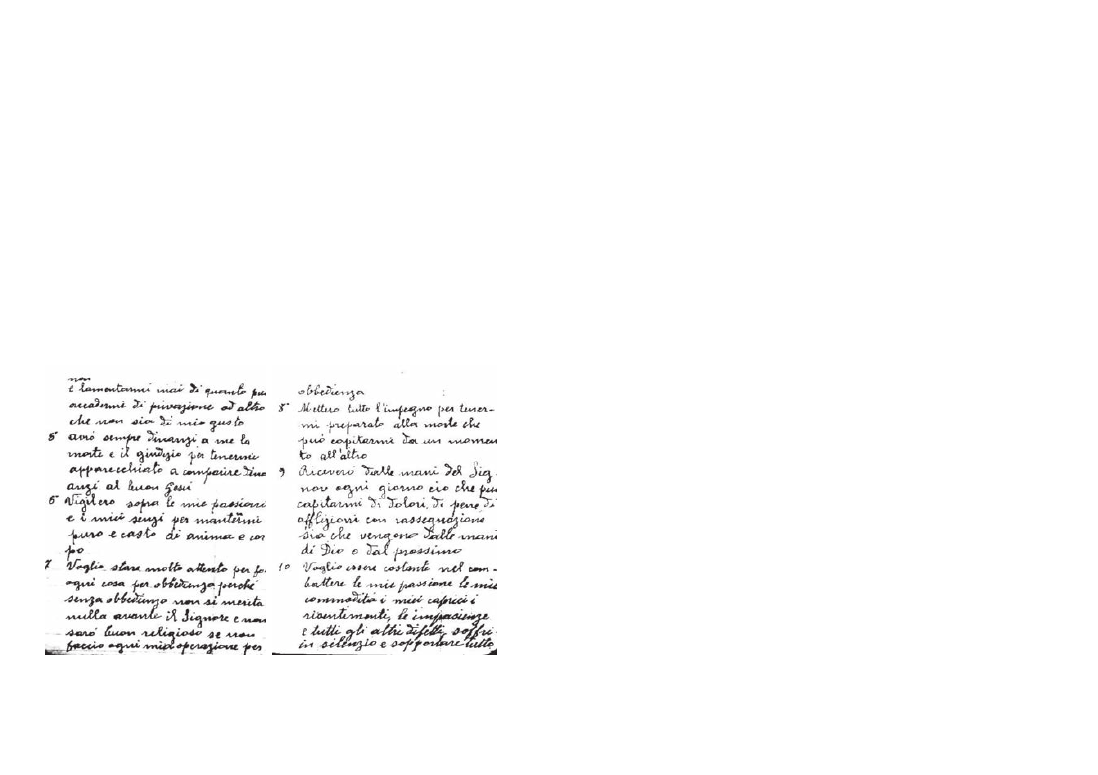 non
e lamentarmi mai di quanto puo
accadermi di privazione od altro
che non sia di mio gusto
5° avró sempre dinanzi a me la
morte e il giudizio per tenermi
apparecchiato a comparire dina
anzi al buon Gesú
6° Vigilero sopra le mie passioni
e i miei sensi per mantermi
puro e casto di anima e cor
po
7 Voglio stare molto attento per fa
ogni cosa per obbedienza perché
senza obbedienza non si merita
nulla avante il Signore e non
saró buon religioso se non
faccio ogni mia operazione per
obbedienza
8° Mettero tutto l'impegno per tener-
mi preparato alla morte che
può capitarmi da un momen
to all'altro
9 Riceveró dalle mani del Sig
nore ogni giorno cio che puo
capitarmi di dolori, di pene di
afflizioni con rassegnazione
sia che vengono dalle mani
di Dio o dal prossimo
10 Voglio essere costante nel com-
battere le mie passione le mie
commodità i miei caprici i
risentimenti, le impazienze
e tutti gli altri difetti, soffri
in silenzio e sopportare tutto